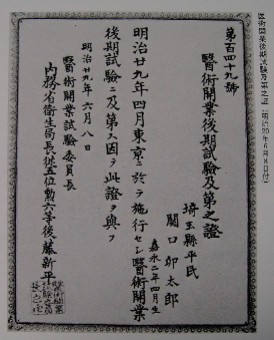 第百四十九號
醫術開業後期試驗及第之證
埼玉縣平民
關口卯太郎
嘉永二年四月生
明治廿九年四月東京ニ於テ施行セシ醫術開業
後期試驗ニ及第ス因テ此證ヲ與フ
明治廿九年六月八日
醫術開業試驗委員長
内務省衛生局長從五位勲六等後藤新平
医術開業後期試験及第之証(明治29年6月8日付)